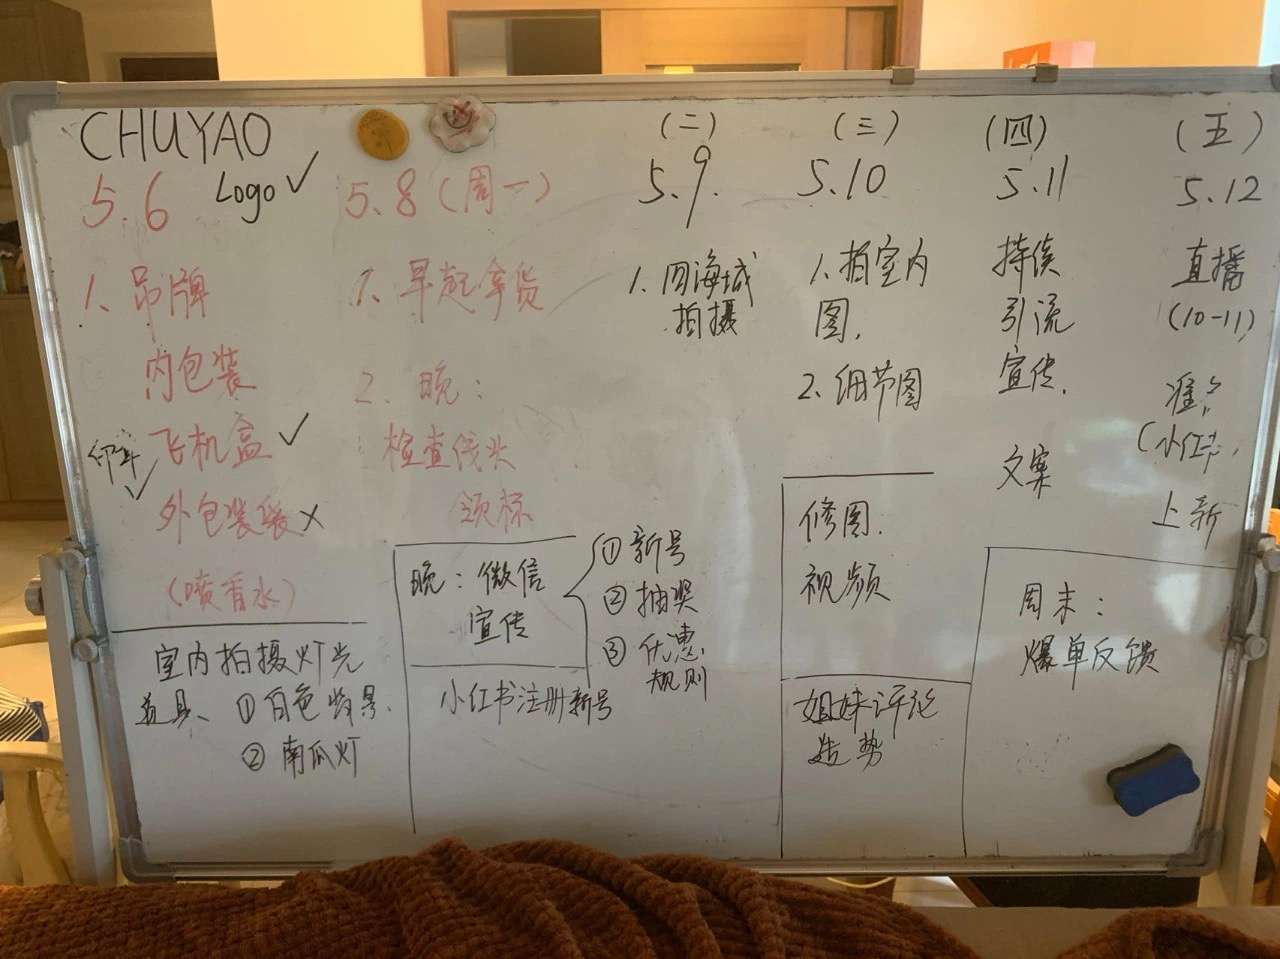 CHUYAO
5.6 Logo ✓
1. 吊牌
内包装
飞机盒 ✓
外包装袋 ×
(喷香水)
室内拍摄灯光
道具、① 白色背景.
② 南瓜灯
5.8 (周一)
1. 早起拿货
2. 晚:
检查线头
领标
晚: 微信
宣传
① 新号
② 抽奖
③ 优惠
规则
小红书注册新号
(二)
5.9.
1. 四海城
拍摄
(三)
5.10
1. 拍室内
图.
2. 细节图
修图.
视频
姐妹评论
造势
(四)
5.11
持续
引流
宣传.
文案
(五)
5.12
直播
(10-11)
上新
周末:
爆单反馈